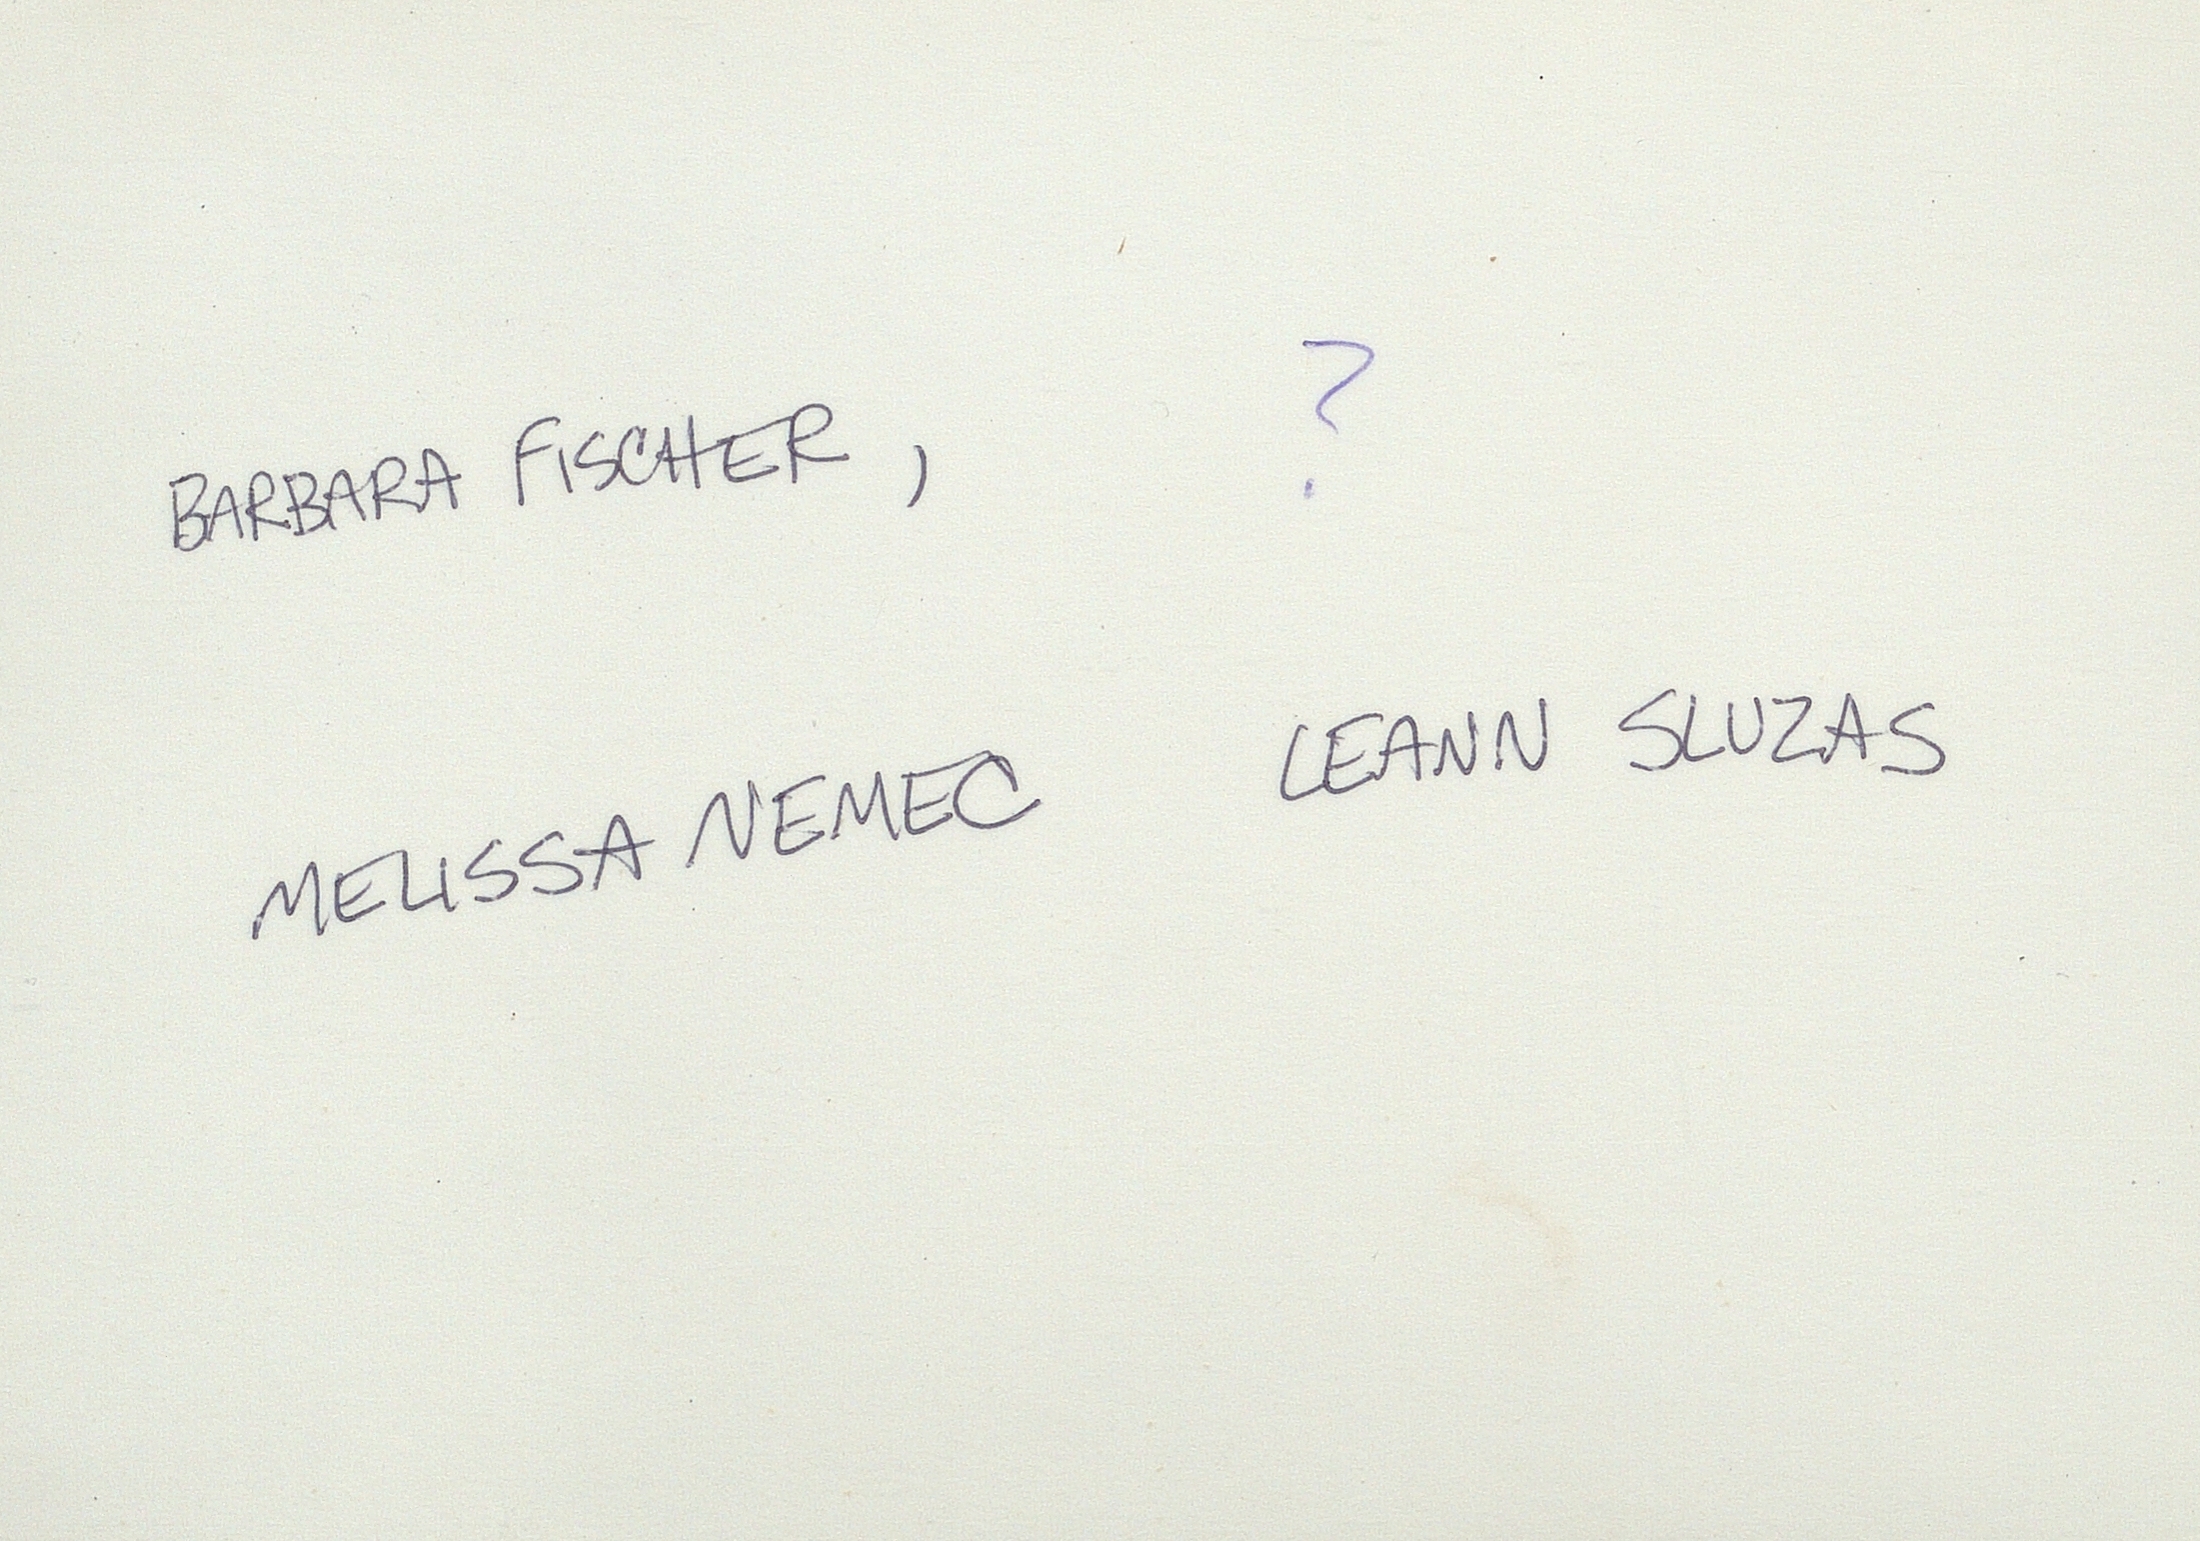 BARBARA FISCHER, ?
MELISSA NEMEC LEANN SLUZAS